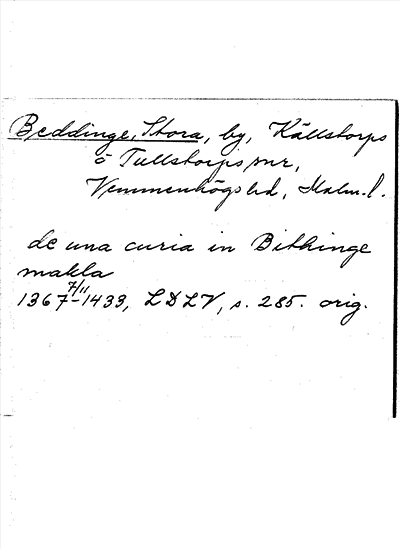 Beddinge, Stora, by, Källstorps
o Tullstorps snr,
Vemmenhögs hd, Malm. l.
de una curia in Bithinge
makla
1367 7/11-1433, LDLV, s. 285. orig.